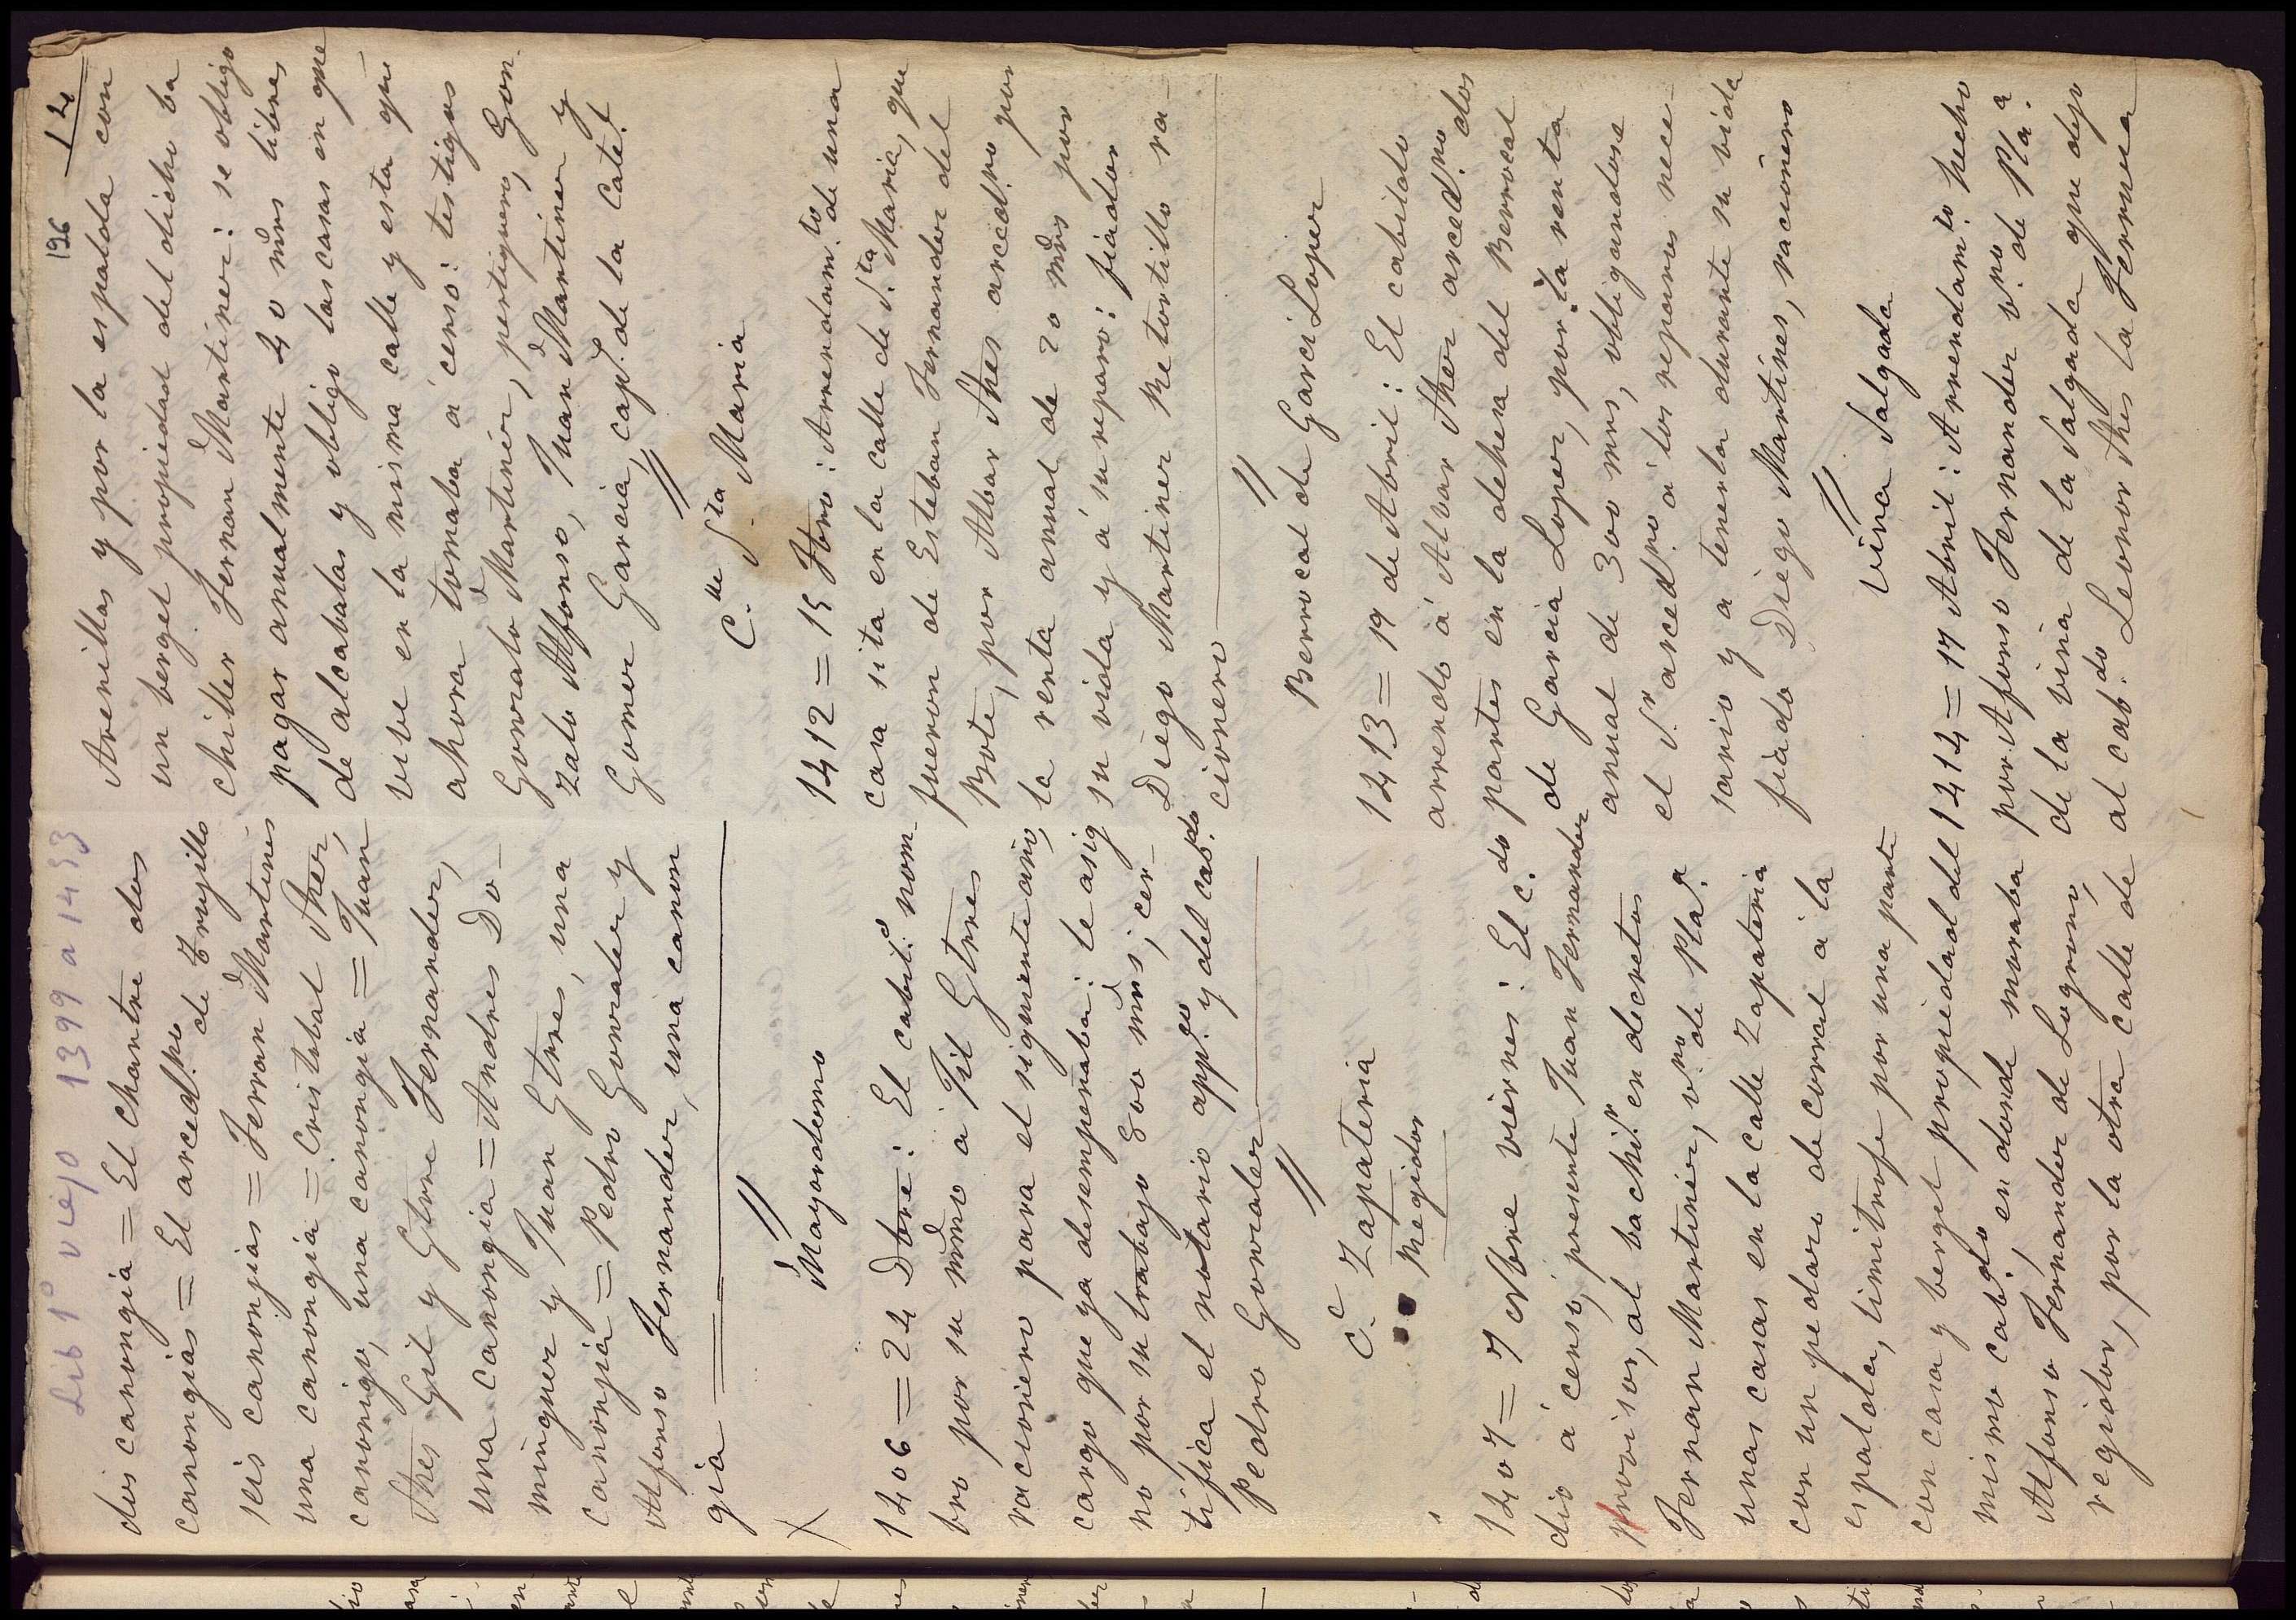 Lib 1º viejo 1399 a 1453
dos canongia = El chantre dos
canongias = El arced.no de Trujillo
seis canonjias = Ferran Martines
una canongia = Cristobal Sher,
canonigo, una canongia = Juan
Shes Gil y Gtrre Fernandez,
una canongia = Andres Do-
minguez y Juan Gtres, una
canonjia = Pedro Gonzalez y
Alfonso Fernandez, una canon
gia
X
Mayordomo
1406 = 24 Dbre: El cabil.o nom-
bro por su mdmo a Gil Gtres
racionero para el siguiente año,
cargo que ya desempeñaba: le asig
no por su trabajo 800 mrs; cer-
tifica el notario app.co y del cab.do
Pedro Gonzalez
C.e Zapateria
Regidor
1407 = 7 Nbre viernes: El c.do
dio a censo, presente Juan Fernandez
provisor, al bachi.r en decretos
Fernan Martinez, v.no de Pla.a
unas casas en la calle Zapateria
con un pedazo de corral á la
espalda, limitrofe por una parte
con casa y bergel propiedad del
mismo cab.do, en donde moraba
Alfonso Fernandez de Logroño,
regidor, por la otra calle de
196
14
Arenillas y por la espalda con
un bergel propiedad del dicho ba
chiller Fernan Martinez: se obligo
pagar anualmente 40 mrs libres
de alcabalas y obligo las casas en que
vive en la misma calle y esta que
ahora tomaba á censo: testigos
Gonzalo Martinez, pertiguero, Gon
zalo Alfonso, Juan Martinez y
Gomez Garcia, cap.l de la Cate.l
C.lle S.ta Maria
1412 = 15 Fbro: Arrendam.to de una
casa sita en la calle de S.ta Maria, que
fueron de Esteban Fernandez del
Bote, por Albar Shes arced.no por
la renta annual de 20 mrs por
su vida y á su reparo: fiador
Diego Martinez Retortillo ra-
cionero
Berrocal de Garci Lopez
1413 = 19 de Abril: El cabildo
arrendo á Alvar Sher arced.no dos
partes en la dehesa del Berrocal
de Garcia Lopez, por la renta
anual de 300 mrs, obligandose
el S.r arced.no a los reparos nece-
sario y a tenerla durante su vida
fiado Diego Martines, racionero
Viña Salgada
1414 = 17 Abril: Arrendam.to hecho
por Afonso Fernandez v.no de Pla.a
de la viña de la Salgada que dejo
al cab.do Leonor Shes la Ferrura